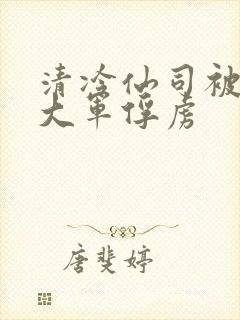 清冷仙司被
大军俘虏
唐斐婷